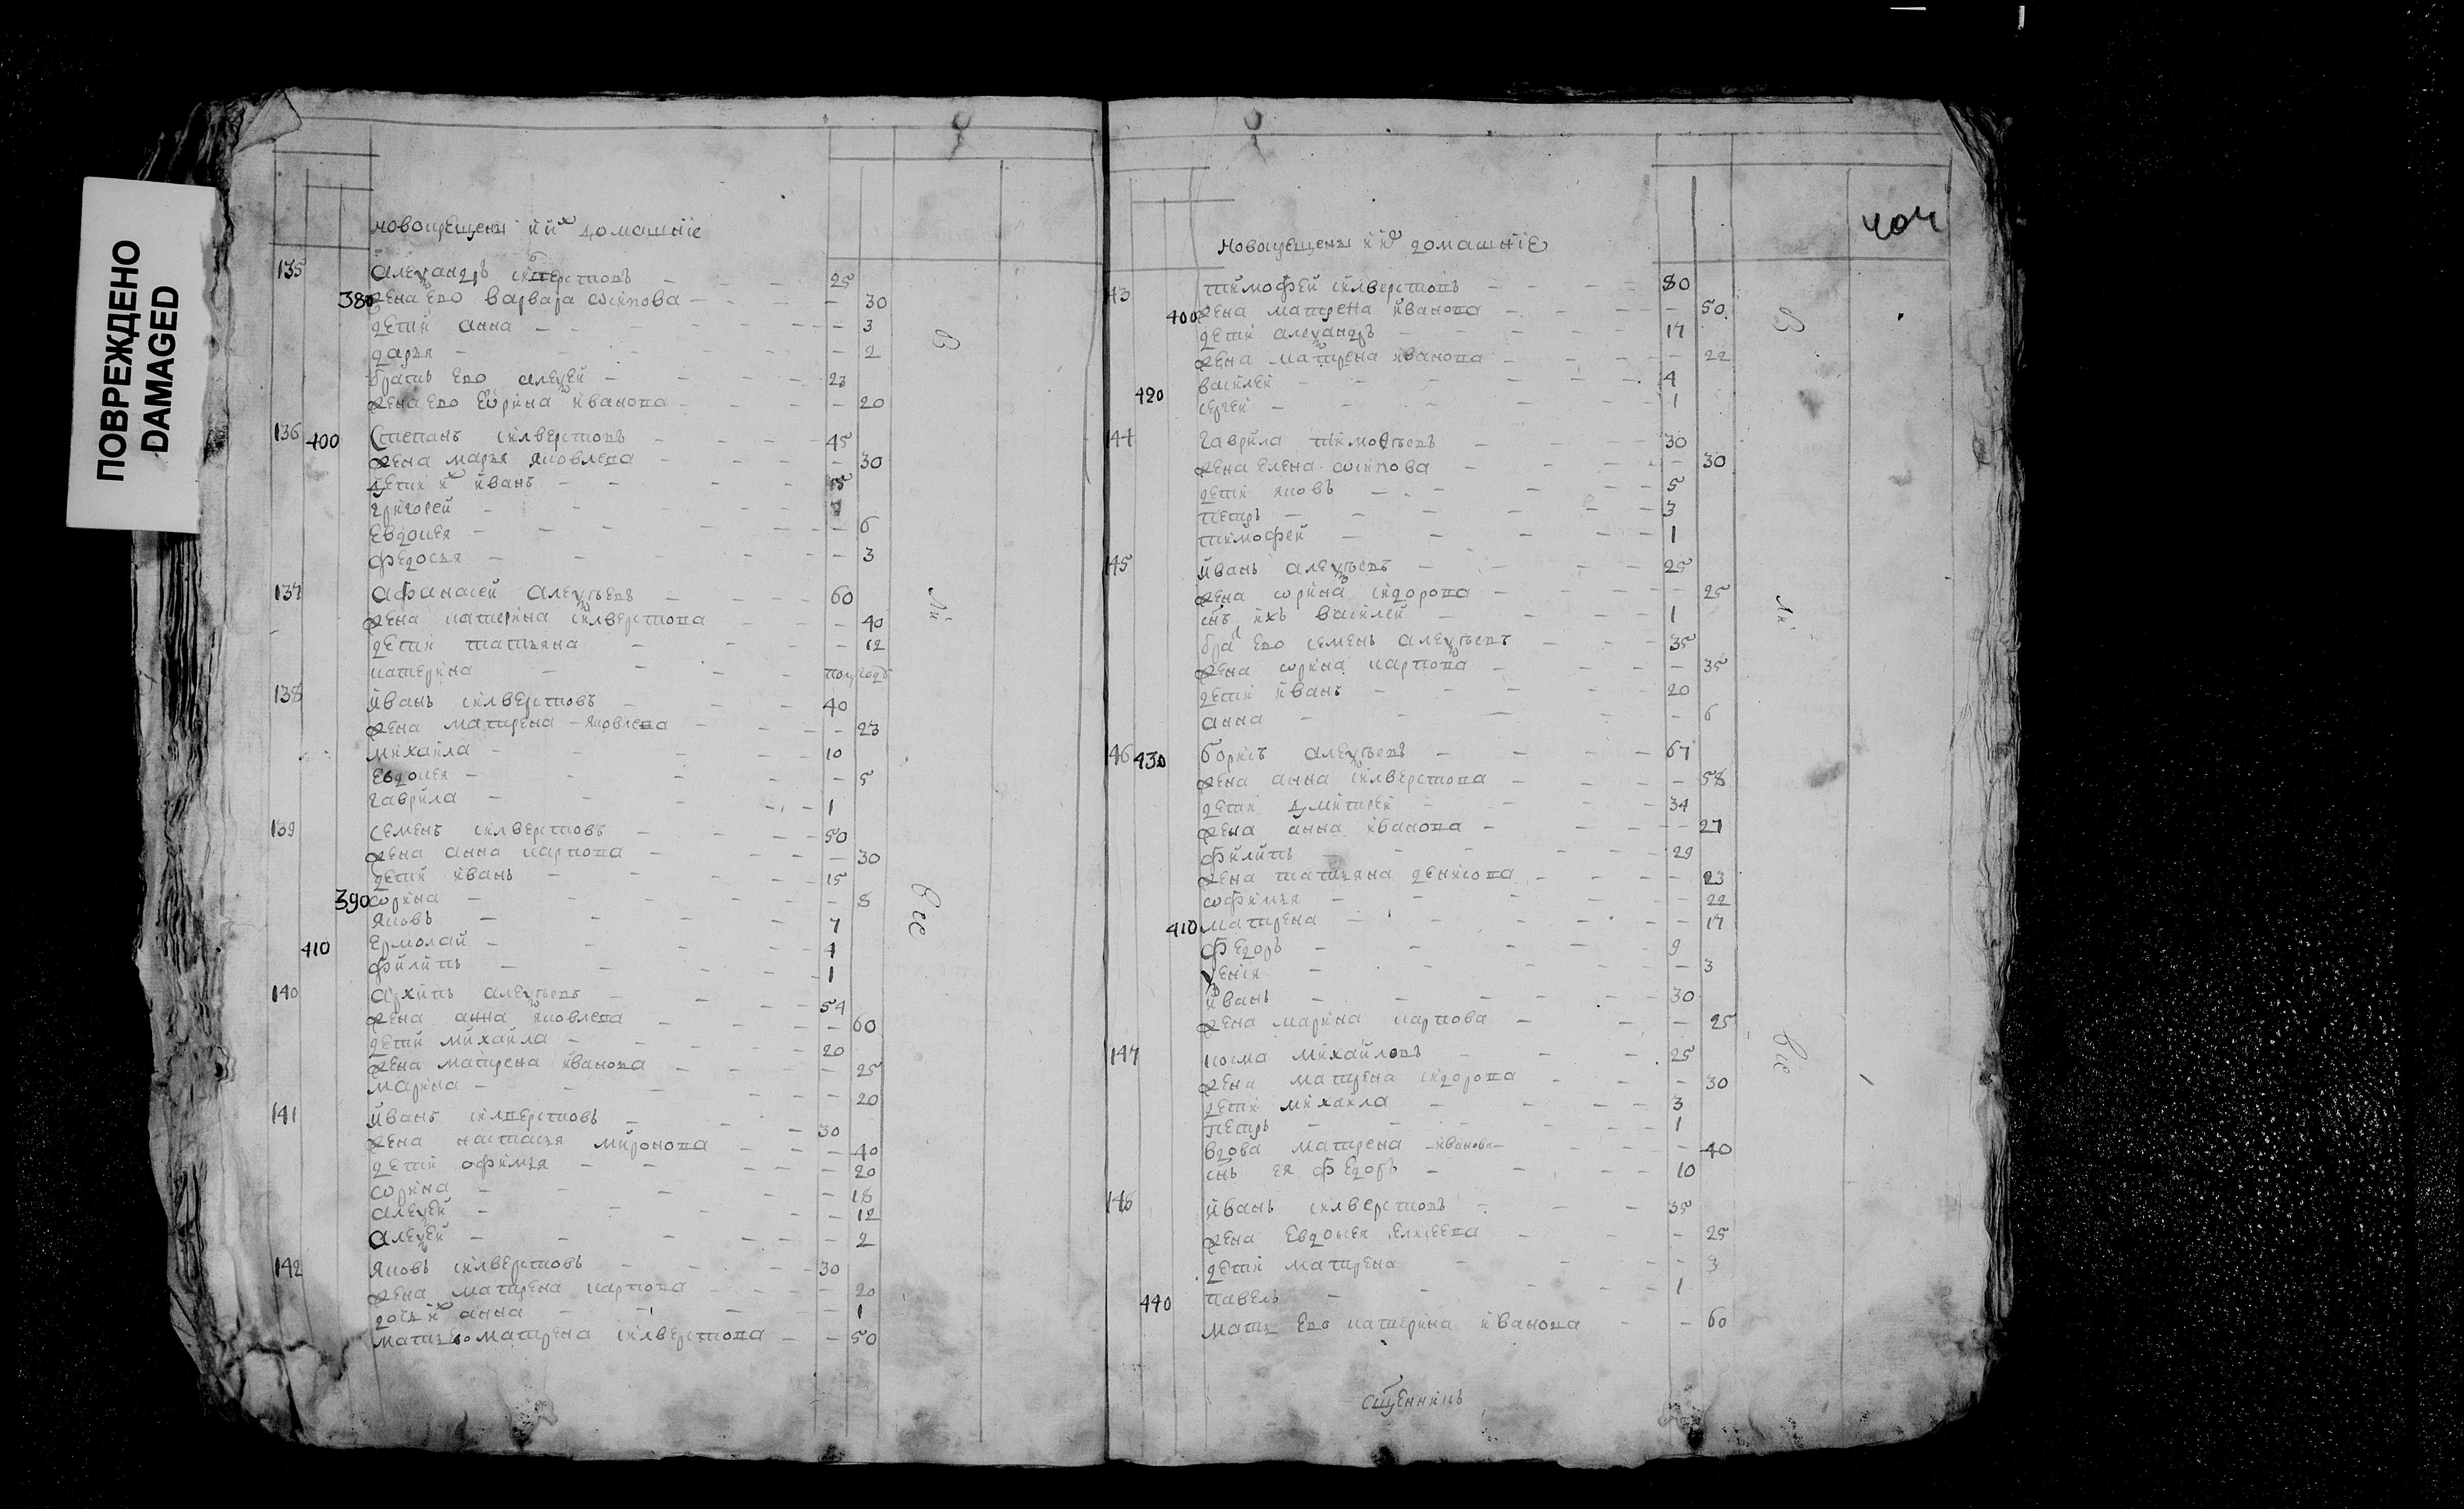 ПОВРЕЖДЕНО
DAMAGED
новокрещены и ихъ домашнїе
135 Алеѯандръ силверстовъ 25
380 жена ево варвара ѡсипова 30
дети анна 3
дарья 2
братъ ево алеѯей 23
жена ево ѡрина иванова 20
136 400 Степанъ силверстовъ 45
жена марья яковлева 30
дети их иванъ 15
григорей
Евдокея 6
федосья 3
137 Афанасей Алеѯѣевъ 60
жена катерина силверстова 40
дети татьяна 12
катерина полугодъ
138 иванъ силверстовъ 40
жена матрена яковлева 23
михаила 10
Евдокея 5
гаврила 1
139 семенъ силверстовъ 50
жена анна карпова 30
дети иванъ 15
390 ѡрина 8
яковъ 7
410 Ермолай 4
филипъ 1
140 Архипъ алеѯѣевъ 54
жена анна яковлева 60
дети михаила 20
жена матрена иванова 25
марина 20
141 иванъ силверстовъ 30
жена настасья миронова 40
дети офимья 20
ѡрина 18
алеѯей 12
Алеѯей 2
142 яковъ силверстовъ 30
жена матрена карпова 20
дочь их анна 1
мать ево матрена силверстова 50
В
Ли
все
404
новокрещены и ихъ домашнїе
43 тимофей силверстовъ 80
400 жена матрена иванова 50
дети алеѯандръ 17
жена матрена иванова 22
василей 4
420 сергей 1
144 гаврила тимофѣевъ 30
жена елена ѡсипова 30
дети яковъ 5
петръ 3
тимофей 1
145 иванъ алеѯѣевъ 25
жена ѡрина сидорова 25
снъ ихъ василей 1
бра ево семенъ алеѯѣевъ 35
жена ѡрина карпова 35
дети иванъ 20
анна 6
146 430 борисъ алеѯѣевъ 67
жена анна силверстова 58
дети дмитрей 34
жена анна иванова 27
филипъ 29
жена татьяна денисова 23
ѡфимья 22
410 матрена 17
федоръ 9
ѯенїя 3
иванъ 30
жена марина карпова 25
147 косма михайловъ 25
жена матрена сидорова 30
дети михаила 3
петръ 1
вдова матрена иванова 40
снъ ея федоръ 10
148 иванъ силверстовъ 35
жена евдокея Елисеева 25
дети матрена 3
440 павелъ 1
мать ево катерина иванова 60
В
Ли
все
сщенникъ